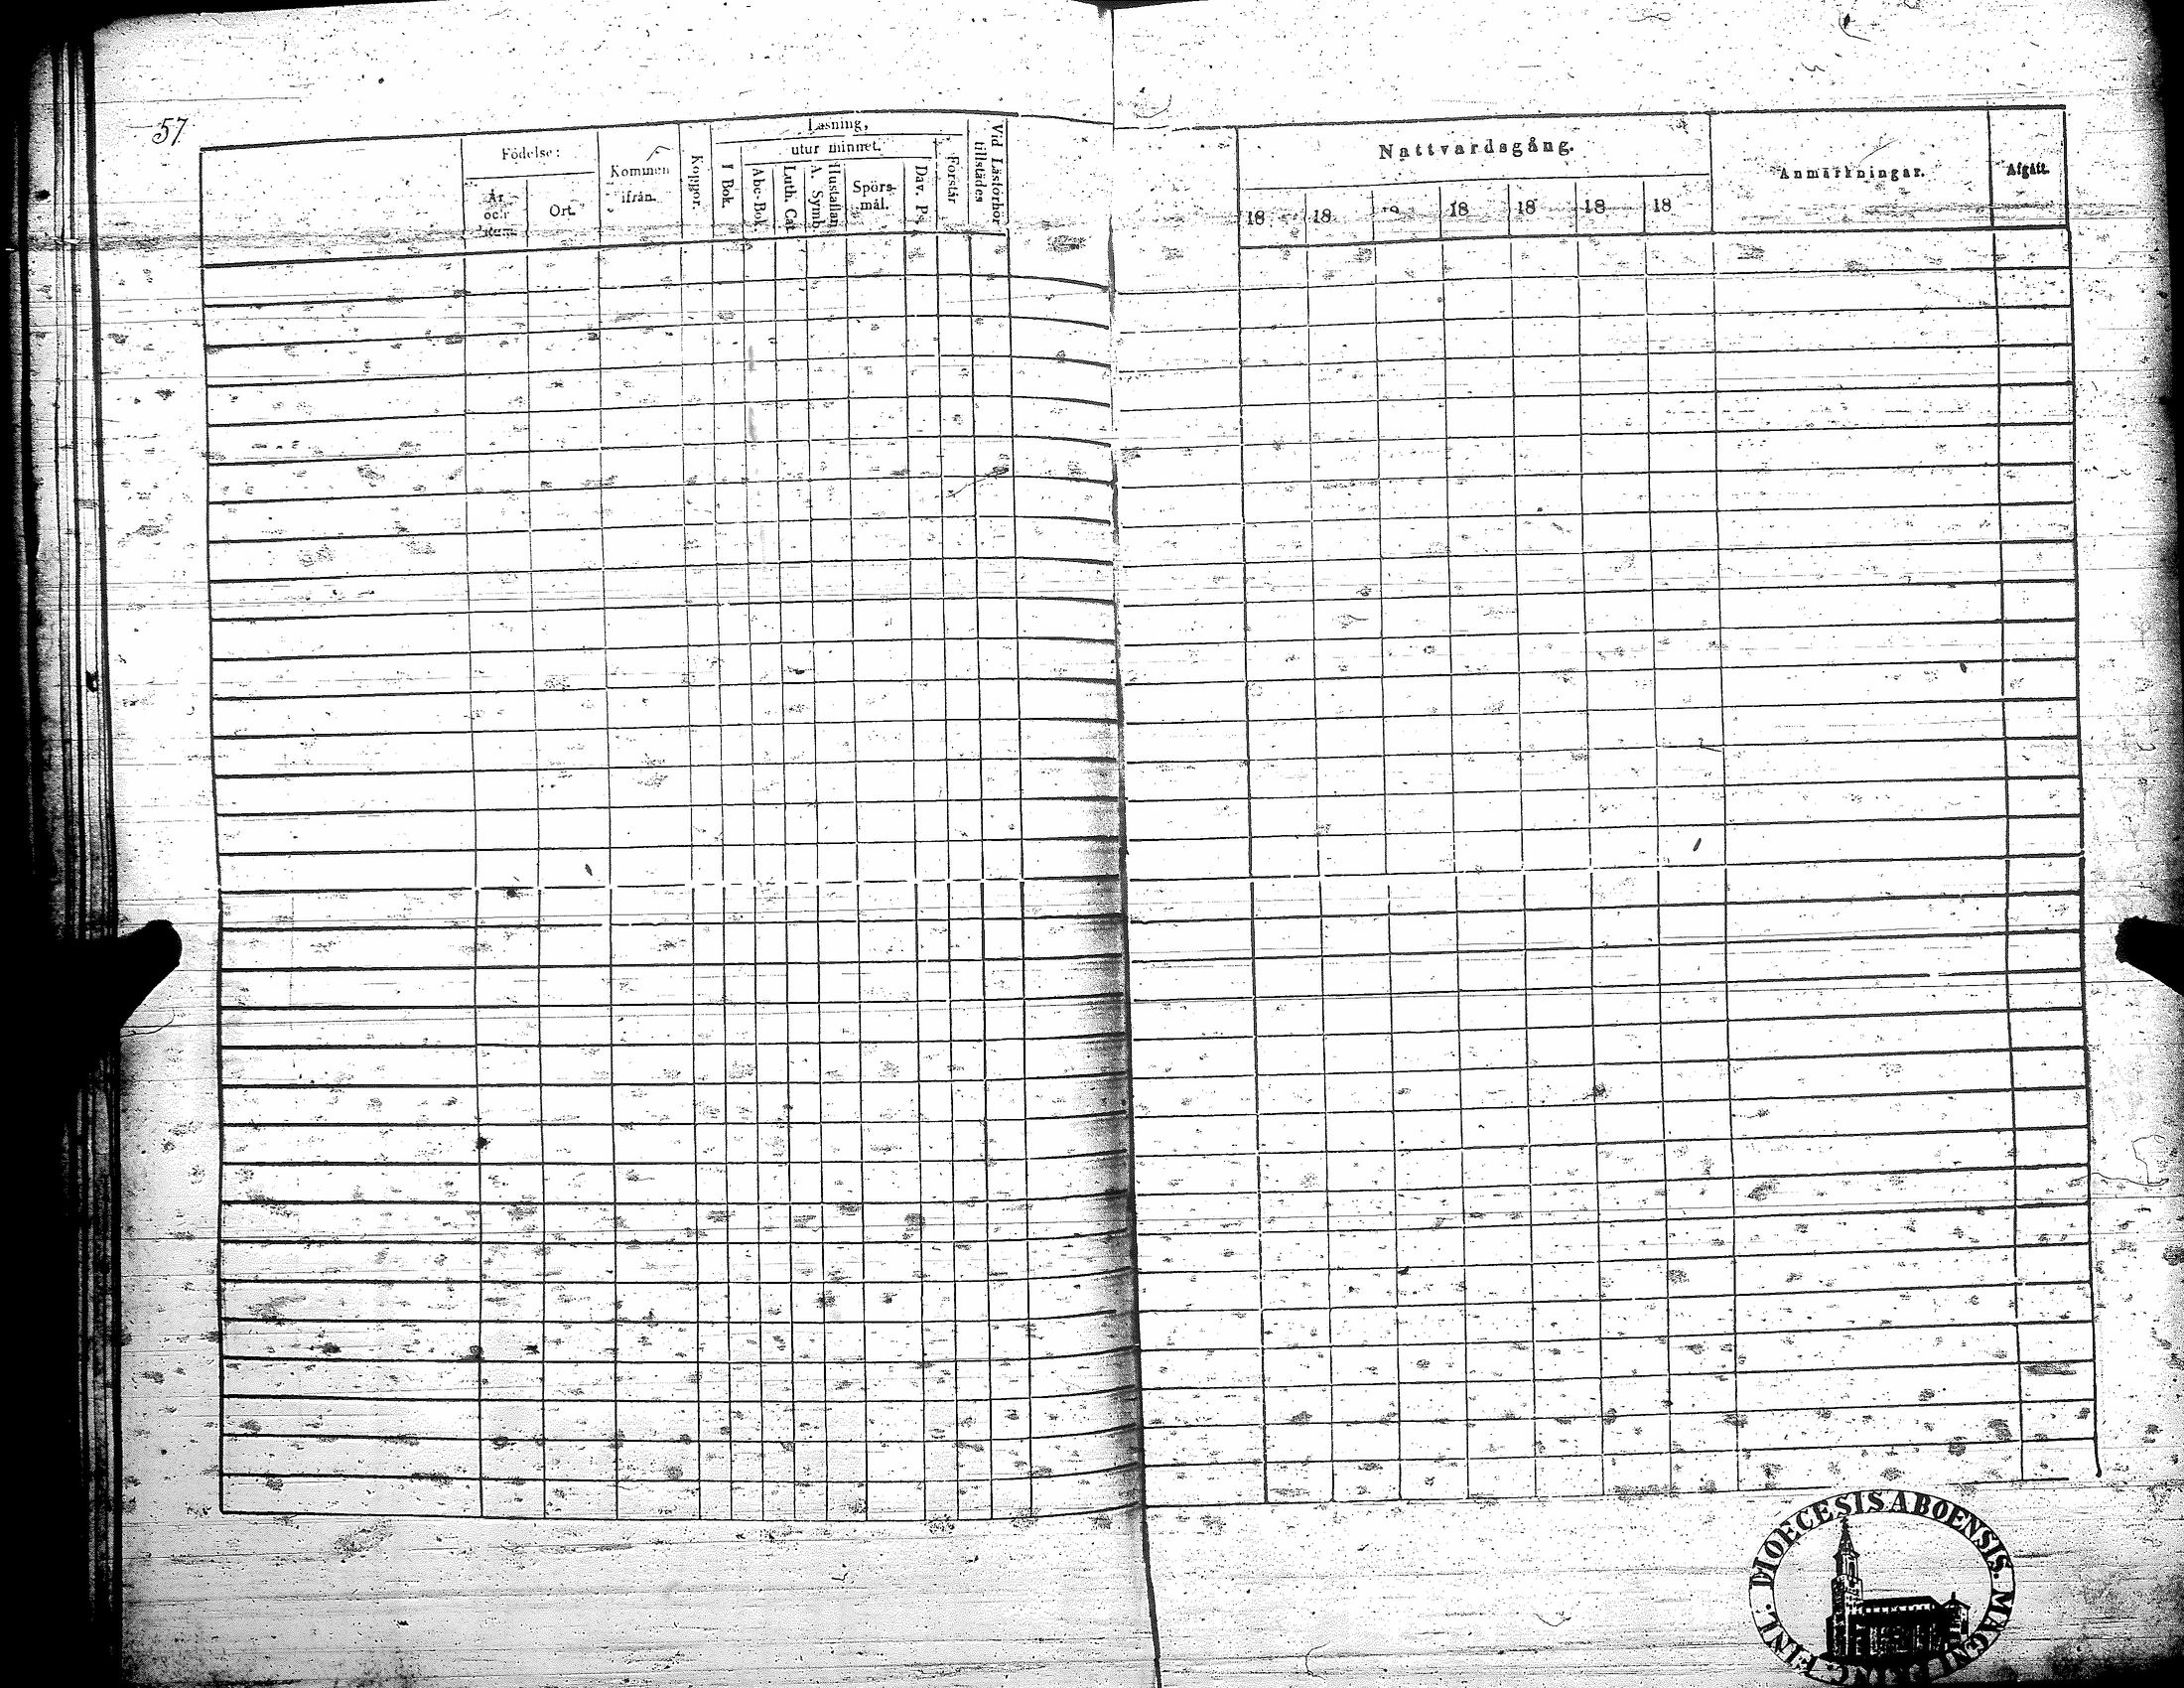 57
Läsning,
Födelse:
utur minnet.
Kommen
ifrån.
Koppor.
I Bok.
Abc-Bok.
Luth. Cat.
A. Symb.
Hustaflan.
Spörs-
mål.
Dav. Ps.
Förstår
Vid Läsförhör
tillstädes
År
och
Ort.
Nattvardsgång.
Anmärkningar.
Afgått.
18 18 18 18 18 18 18
DIOECESIS ABOENSIS. MAGNI DUC. FINL.